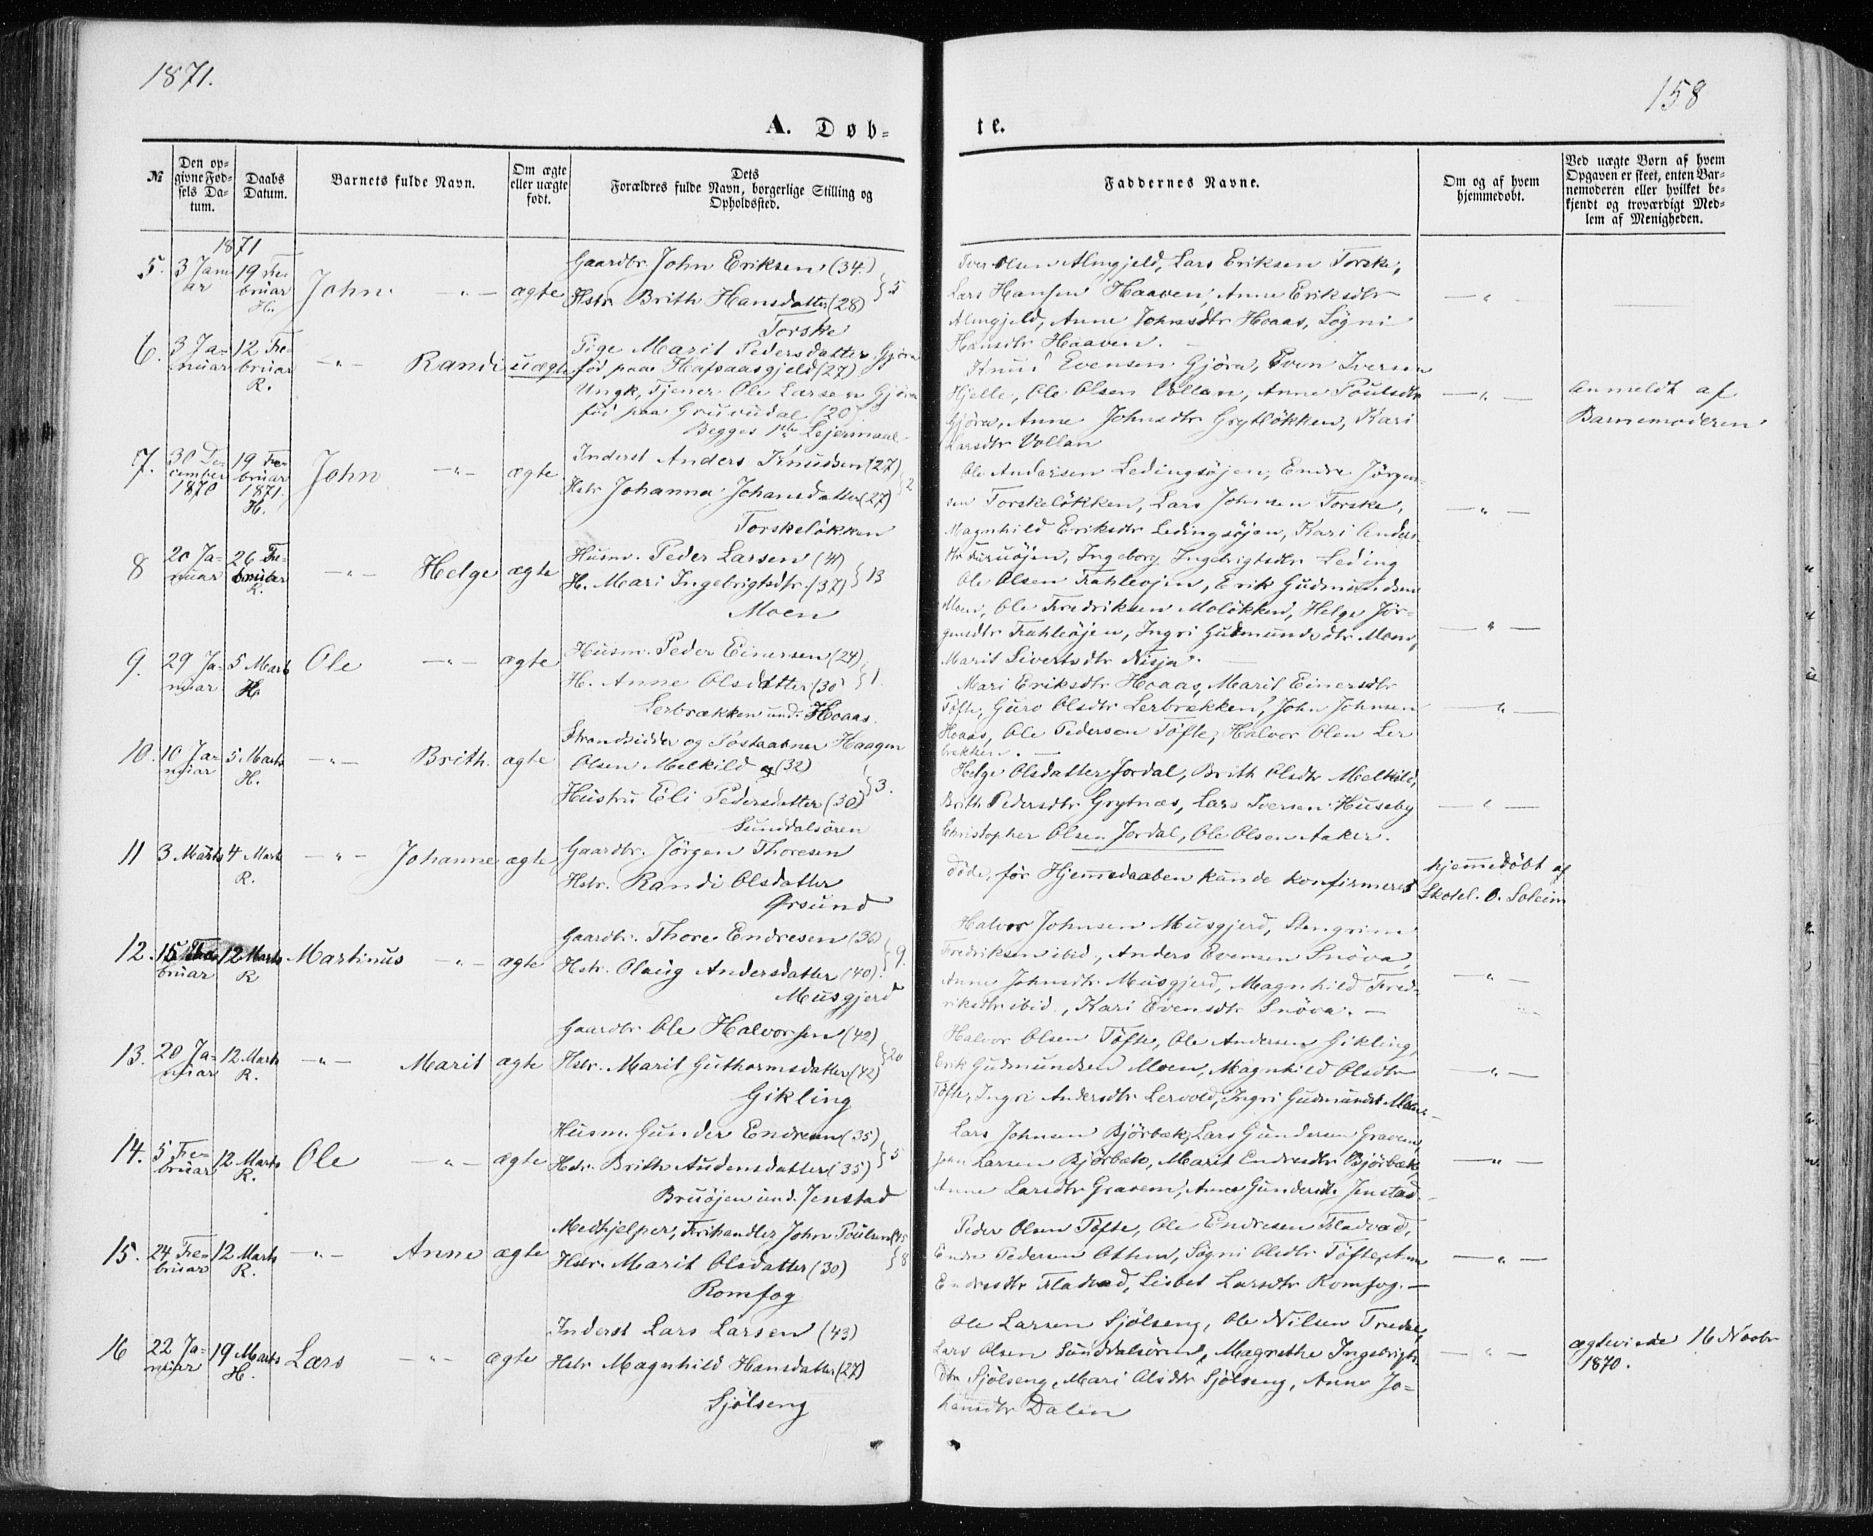 1871.
158
A. Døb-
te.
№
Den op-
givne Fød-
sels Da-
tum.
Daabs
Datum.
Barnets fulde Navn.
Om ægte
eller uægte
født.
Dets
Forældres fulde Navn, borgerlige Stilling og
Opholdssted.
Faddernes Navne.
Om og af hvem
hjemmedøbt.
Ved uægte Børn af hvem
Opgaven er skeet, enten Bar-
nemoderen eller hvilket be-
kjendt og troværdigt Med-
lem af Menigheden.
1871
5. 3 Janu-
ar
19 Fe-
bruar
H.
John
-"-
ægte
Gaardbr. John Eriksen (34)
Hstr. Brith Hansdatter (28) } 5
Torske
Iver Olsen Almgjeld, Lars Eriksen Torske,
Lars Hansen Haaven, Anne Eriksdtr
Almgjeld, Anne Johnsdtr Hoaas, Søgni
Hansdtr Haaven.
-"-
6. 3 Ja-
nuar
12 Fe-
bruar
R.
-"-
Randi
uægte
Pige Marit Pedersdatter Gjøra
fød paa Hafsaasgjeld (27)
Ungk. Tjener Ole Larsen Gjøra
fød paa Gruvudal (20)
Begges 1ste Lejermaal
Knut Evensen Gjøra, Even Iversen
Hjelle, Ole Olsen Vollan, Anne Poulsdtr
Gjöra, Anne Johnsdtr Grytløkken, Kari
Larsdtr Vollan
-"-
anmeldt af
Barnemoderen
7. 30 De-
cember
1870
19 Fe-
bruar
1871.
H.
John
-"-
ægte
Inderst Anders Knudsen (27)
Hstr Johanna Johansdatter (27) } 2
Torskeløkken
Ole Andersen Ledingsøjen, Endre Jørgen-
sen Torskeløkken, Lars Johnsen Torske,
Magnhild Eriksdtr Ledingsøjen, Kari Anders
dtr Furuøjen, Ingeborg Ingebrigtsdtr Leding
-"-
8 20 Ja-
nuar
26 Fe-
bruar
R.
-"-
Helge
ægte
Husm. Peder Larsen (41)
H. Mari Ingebrigtsdtr. (37) } 13
Moen
Ole Olsen Trahleøjen, Erik Gudmundsen
Moen, Ole Fredriksen Moløkken, Helge Jør-
gensdtr Trahleøjen, Ingri Gudmundsdtr Moen,
Marit Sivertsdtr Nisja.
-"-
9. 29 Ja-
nuar
5 Marts
H.
Ole
-"-
ægte
Husm. Peder Einersen (24)
H. Anne Olsdatter (30) } 1.
Lerbrækken und. Hoaas.
Mari Eriksdtr Hoaas, Marit Einersdtr
Töfte, Guro Olsdtr Lerbrækken, John Johnsen
Hoaas, Ole Pedersen Töfte, Halvor Olsen Ler
brækken.
-"-
10. 10 Ja-
nuar
5. Marts
H.
-"-
Brith.
ægte
Strandsidder og Haagen
Olsen Melkild (32)
Hustru Eli Pedersdatter (30) } 3.
Sunddalsören
Helge Olsdatter Jordal, Brith Olsdtr Melkild,
Brith Pedersdtr Grytnæs, Lars Iversen Huseby
Christopher Olsen Jordal, Ole Olsen Aaker.
-"-
11 3 Marts
4 Marts
R.
-"-
Johanne
ægte
Gaardbr. Jörgen Thoresen
Hstr. Randi Olsdatter
Ørsund
döde, för Hjemmedaaben kunde konfirmeres
hjemmedöbt af
Skolel. O. Soleim
12. 15 Fe-
bruar
12 Marts
R
Martinus
-"-
ægte
Gaardbr. Thore Endresen (36)
Hstr. Olaug Andersdatter (40) } 9.
Musgjerd
Halvor Johnsen Musgjerd, Stengrim
Fredriksen ibid, Anders Evensen Snöva,
Anne Johnsdtr Musgjerd, Magnhild Fred-
riksdtr ibid, Kari Evensdtr Snöva. -
-"-
13. 20 Ja-
nuar
12 Marts
R.
-"-
Marit
ægte
Gaardbr Ole Halvorsen (42)
Hstr. Marit Guthormsdatter (42) } 20
Gikling
Halvor Olsen Töfte, Ole Andersen Gikling,
Erik Gudmundsen Moen, Magnhild Olsdtr
Töfte, Ingri Andersdtr Lervold, Ingri Gudmundsdtr Moen.
-"-
14. 5 Fe-
bruar
12 Marts
R.
Ole
-"-
ægte
Husm. Gunder Endresen (35)
Hstr. Brith Audensdatter (35) } 5
Bruöjen und. Jenstad
Lars Johnsen Björbæk, Lars Gundersen Gravem,
John Larsen Björbæk, Marit Endresdtr Björbæk
Anne Larsdtr Gravem, Anne Gundersdtr Jenstad.
-"-
15. 24 Fe-
bruar
12 Marts
R.
-"-
Anne
ægte
Medhjelper, Frihandler John Poulsen (45)
Hstr. Marit Olsdatter (30) } 8
Romfog
Peder Olsen Töfte, Ole Endresen Fladvad,
Endre Pedersen Othem, Sögni Olsdtr Töfte, Anne
Endresdtr Fladvad, Lisbet Larsdtr Romfog. -
-"-
16 22 Ja-
nuar
19 Marts
H.
Lars
-"-
ægte
Inderst Lars Larsen (43)
Hstr Magnhild Hansdatter (27)
Sjölseng
Ole Larsen Sjölseng, Ole Nilsen Fredal,
Lars Olsen Sunddalsören, Magrethe Ingebrigts
dtr Sjölseng, Mari Olsdtr Sjölseng, Anne Jo-
hansdtr Dalen
-"-
ægteviede 16 Novbr
1870.